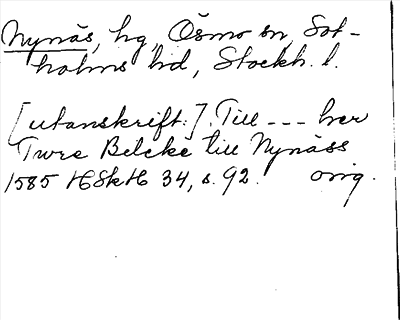 Nynäs, hg, Ösmo sn, Sot-
holms hd, Stockh. l.
[utanskrift:]. Till --- her
Twre Belcke till Nynäss
1585 HSkH 34, s. 92. orig.